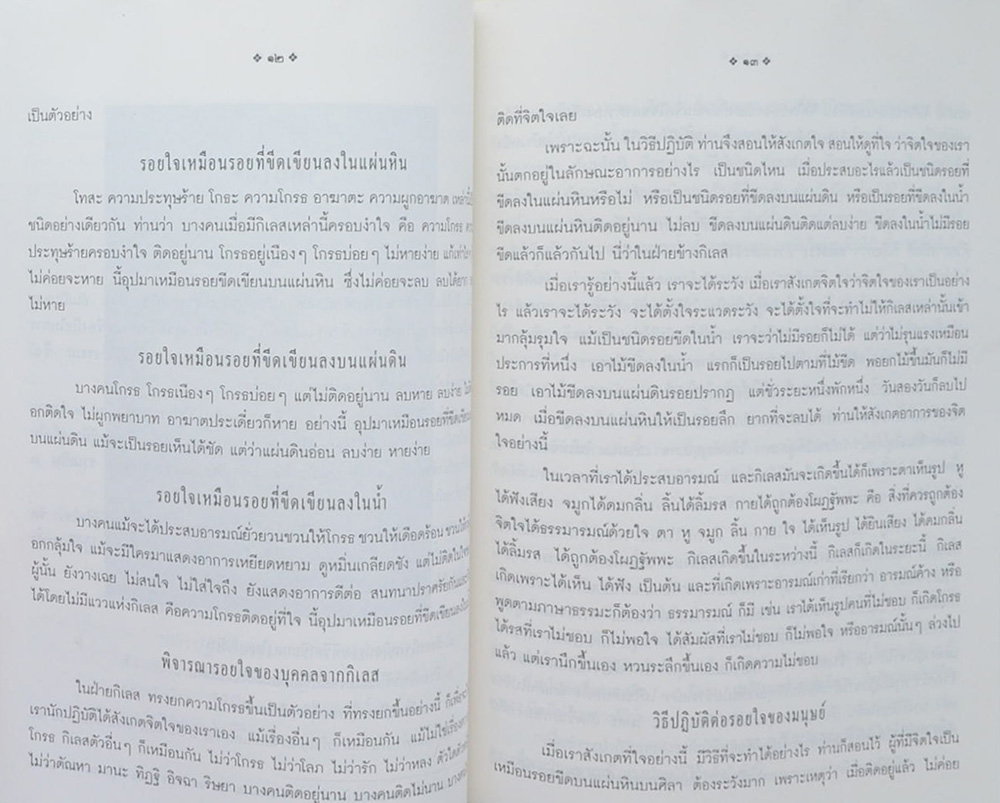 ❖ ๑๒ ❖
เป็นตัวอย่าง
รอยใจเหมือนรอยที่ขีดเขียนลงในแผ่นหิน
โทสะ ความประทุษร้าย โกธะ ความโกรธ อาฆาตะ ความผูกอาฆาต เหล่านี้
ชนิดอย่างเดียวกัน ท่านว่า บางคนเมื่อมีกิเลสเหล่านี้ครอบงำใจ คือ ความโกรธ
ประทุษร้ายครอบงำใจ ติดอยู่นาน โกรธอยู่เนืองๆ โกรธบ่อยๆ ไม่หายง่าย
ไม่ค่อยจะหาย นี้อุปมาเหมือนรอยขีดเขียนบนแผ่นหิน ซึ่งไม่ค่อยจะลบ ลบได้ยาก
ไม่หาย
รอยใจเหมือนรอยที่ขีดเขียนลงบนแผ่นดิน
บางคนโกรธ โกรธเนืองๆ โกรธบ่อยๆ แต่ไม่ติดอยู่นาน ลบหาย ลบง่าย
อกติดใจ ไม่ผูกพยาบาท อาฆาตประเดี๋ยวก็หาย อย่างนี้ อุปมาเหมือนรอยที่ขีดเขียน
บนแผ่นดิน แม้จะเป็นรอยเห็นได้ชัด แต่ว่าแผ่นดินอ่อน ลบง่าย หายง่าย
รอยใจเหมือนรอยที่ขีดเขียนลงในน้ำ
บางคนแม้จะได้ประสบอารมณ์ยั่วยวนชวนให้โกรธ ชวนให้เดือดร้อน ชวนให้
อกกลุ้มใจ แม้จะมีใครมาแสดงอาการเหยียดหยาม ดูหมิ่นเกลียดชัง แต่ไม่ติดในใจ
ผู้นั้น ยังวางเฉย ไม่สนใจ ไม่ใส่ใจถึง ยังแสดงอาการดีต่อ สนทนาปราศรัยกัน
ได้โดยไม่มีแววแห่งกิเลส คือความโกรธติดอยู่ที่ใจ นี้อุปมาเหมือนรอยที่ขีดเขียนลงใน
พิจารณารอยใจของบุคคลจากกิเลส
ในฝ่ายกิเลส ทรงยกความโกรธขึ้นเป็นตัวอย่าง ที่ทรงยกขึ้นอย่างนี้ ก็เพื่อจะ
เรานักปฏิบัติได้สังเกตจิตใจของเราเอง แม้เรื่องอื่นๆ ก็เหมือนกัน แม้ไม่ใช่เรื่อง
โกรธ กิเลสตัวอื่นๆ ก็เหมือนกัน ไม่ว่าโกรธ ไม่ว่าโลภ ไม่ว่ารัก ไม่ว่าหลง ตัวใด
ไม่ว่าตัณหา มานะ ทิฏฐิ อิจฉา ริษยา บางคนติดอยู่นาน บางคนติดไม่นาน บางคน
❖ ๑๓ ❖
ติดที่จิตใจเลย
เพราะฉะนั้น ในวิธีปฏิบัติ ท่านจึงสอนให้สังเกตใจ สอนให้ดูที่ใจ ว่าจิตใจของเรา
นั้นตกอยู่ในลักษณะอาการอย่างไร เป็นชนิดไหน เมื่อประสบอะไรแล้วเป็นชนิดรอยที่
ขีดลงในแผ่นหินหรือไม่ หรือเป็นชนิดรอยที่ขีดลงบนแผ่นดิน หรือเป็นรอยที่ขีดลงในน้ำ
ขีดลงบนแผ่นหินติดอยู่นาน ไม่ลบ ขีดลงบนแผ่นดินติดแต่ลบง่าย ขีดลงในน้ำไม่มีรอย
ขีดแล้วก็แล้วกันไป นี่ว่าในฝ่ายข้างกิเลส
เมื่อเรารู้อย่างนี้แล้ว เราจะได้ระวัง เมื่อเราสังเกตจิตใจว่าจิตใจของเราเป็นอย่าง
ไร แล้วเราจะได้ระวัง จะได้ตั้งใจระแวดระวัง จะได้ตั้งใจที่จะทำไม่ให้กิเลสเหล่านั้นเข้า
มากลุ้มรุมใจ แม้เป็นชนิดรอยขีดในน้ำ เราจะว่าไม่มีรอยก็ไม่ได้ แต่ว่าไม่รุนแรงเหมือน
ประการที่หนึ่ง เอาไม้ขีดลงในน้ำ แรกก็เป็นรอยไปตามที่ไม้ขีด พอยกไม้ขึ้นมันก็ไม่มี
รอย เอาไม้ขีดลงบนแผ่นดินรอยปรากฏ แต่ชั่วระยะหนึ่งพักหนึ่ง วันสองวันก็ลบไป
หมด เมื่อขีดลงบนแผ่นหินให้เป็นรอยลึก ยากที่จะลบได้ ท่านให้สังเกตอาการของจิต
ใจอย่างนี้
ในเวลาที่เราได้ประสบอารมณ์ และกิเลสมันจะเกิดขึ้นได้ก็เพราะตาเห็นรูป หู
ได้ฟังเสียง จมูกได้ดมกลิ่น ลิ้นได้ลิ้มรส กายได้ถูกต้องโผฏฐัพพะ คือ สิ่งที่ควรถูกต้อง
จิตใจได้ธรรมารมณ์ด้วยใจ ตา หู จมูก ลิ้น กาย ใจ ได้เห็นรูป ได้ยินเสียง ได้ดมกลิ่น
ได้ลิ้มรส ได้ถูกต้องโผฏฐัพพะ กิเลสเกิดขึ้นในระหว่างนี้ กิเลสก็เกิดในระยะนี้ กิเลส
เกิดเพราะได้เห็น ได้ฟัง เป็นต้น และที่เกิดเพราะอารมณ์เก่าที่เรียกว่า อารมณ์ค้าง หรือ
พูดตามภาษาธรรมะก็ต้องว่า ธรรมารมณ์ ก็มี เช่น เราได้เห็นรูปคนที่ไม่ชอบ ก็เกิดโกรธ
ได้รสที่เราไม่ชอบ ก็ไม่พอใจ ได้สัมผัสที่เราไม่ชอบ ก็ไม่พอใจ หรืออารมณ์นั้นๆ ล่วงไป
แล้ว แต่เรานึกขึ้นเอง หวนระลึกขึ้นเอง ก็เกิดความไม่ชอบ
วิธีปฏิบัติต่อรอยใจของมนุษย์
เมื่อเราสังเกตที่ใจอย่างนี้ มีวิธีที่จะทำได้อย่างไร ท่านก็สอนไว้ ผู้ที่มีจิตใจเป็น
เหมือนรอยขีดบนแผ่นหินบนศิลา ต้องระวังมาก เพราะเหตุว่า เมื่อติดอยู่แล้ว ไม่ค่อย